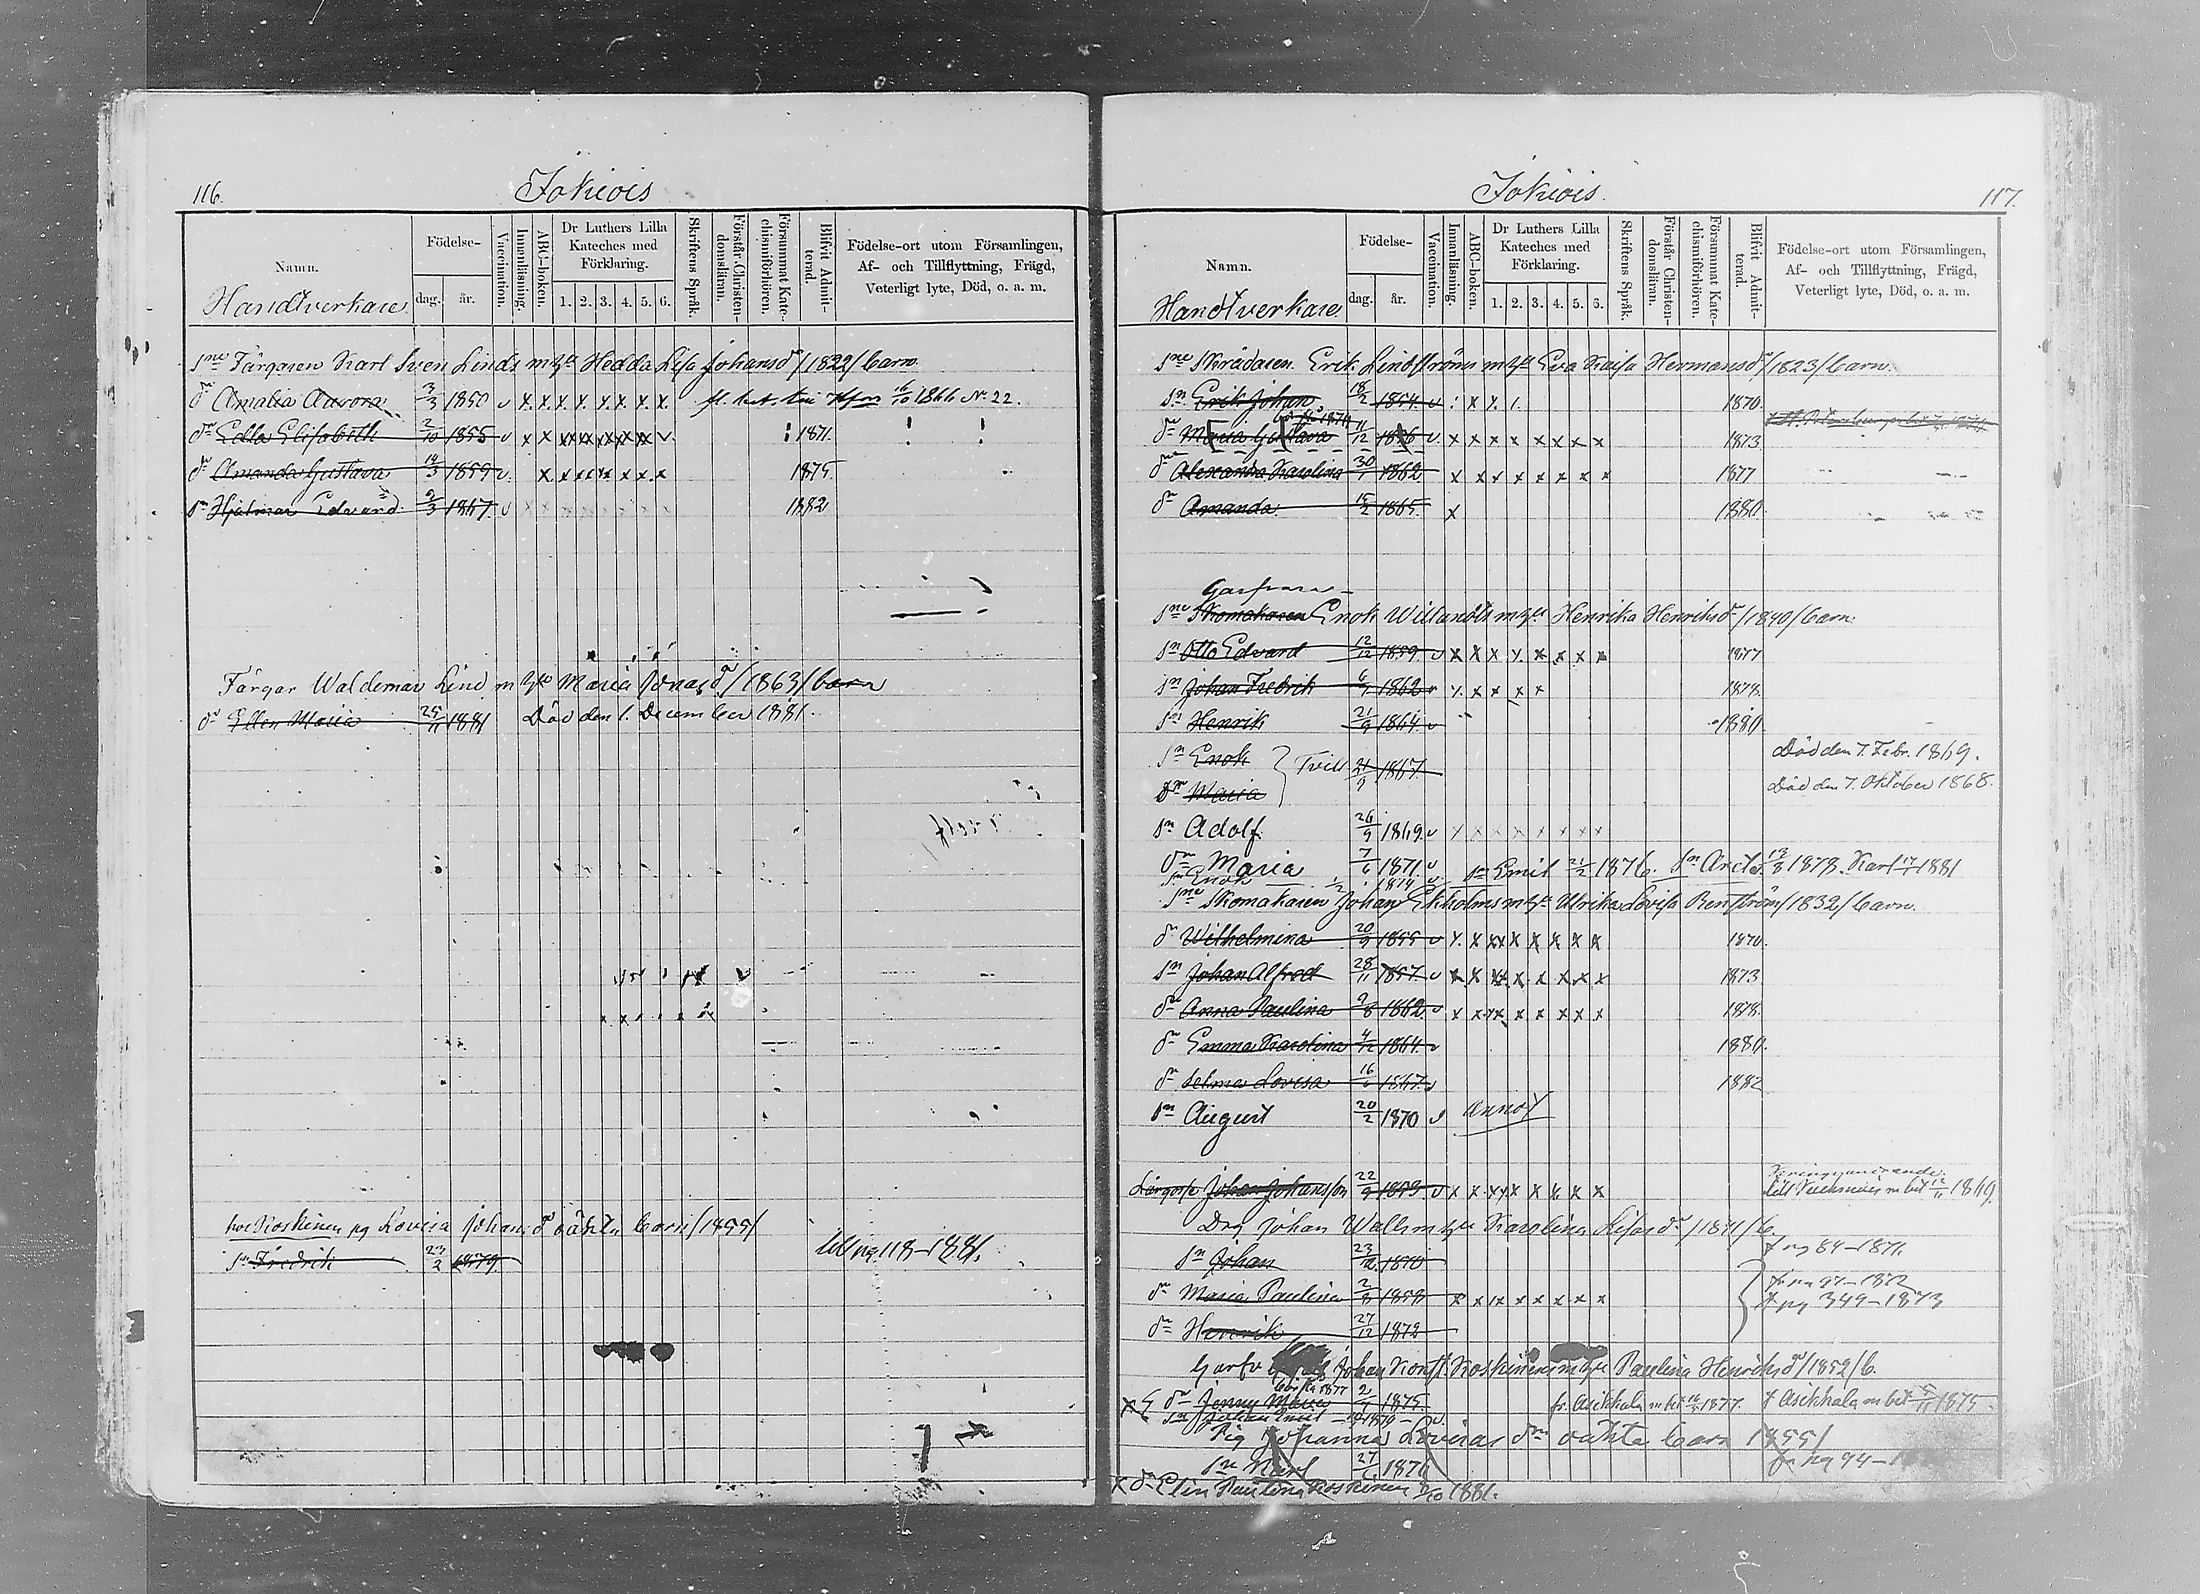 116.
Jokiois
Namn.
Handtverkare.
Födelse-
dag.
år.
Vaccination.
Innanläsning.
ABC-boken.
Dr Luthers Lilla
Kateches med
Förklaring.
1. 2. 3. 4. 5. 6.
Skriftens Språk.
Förstår Christen-
domsläran.
Försummat Kate-
chismiförhören.
Blifvit Admit-
terad.
Födelse-ort utom Församlingen,
Af- och Tillflyttning, Frägd,
Veterligt lyte, Död, o. a. m.
Sne Färgaren Karl Sven Linds m h Hedda Lisa Johansdr /1822/ barn
dr Amalia Aurora 3/3 1850 v x. x. x. x. x. x. x. 16/10 1866 No 22.
dr Edla Elisabeth 2/10 1855 v x x xx xx x x x x v. 1871.
dr Amanda Gustava 14/3 1859 v. x x x x x x x 1875.
sn Hjalmar Edvard 9/3 1867 v 1882
Färgar Waldemar Lind m h Maria Jonasdr /1863/ barn
dr Ellen Maria 25/11 1881 Död den 1. December 1881.
hos Koskinen pg Lovisa Johansdr oäkta barn /1855/
sn Fredrik 23/2 1879. till pg 118-1881.
117.
Jokiois.
Namn.
Handtverkare
Födelse-
dag.
år.
Vaccination.
Innanläsning.
ABC-boken.
Dr Luthers Lilla
Kateches med
Förklaring.
1. 2. 3. 4. 5. 6.
Skriftens Språk.
Förstår Christen-
domsläran.
Försummat Kate-
chismiförhören.
Blifvit Admit-
terad.
Födelse-ort utom Församlingen,
Af- och Tillflyttning, Frägd,
Veterligt lyte, Död, o. a. m.
Sne Skrädaren Erik Lindströms m h Eva Kaisa Hermansdr /1823/ barn.
sn Erik Johan 18/2 1854. v x x. 1870.
dr Maria Gustava 11/12 1856 v. x x x x x x x x 1873
dr Alexandra Karolina 30/1 1862 x x x x x x x x 1877
dr Amanda 15/2 1865. x 1880.
Garfvare
Sne Skomakaren Enok Willands m h Henrika Henriksdr /1840/ barn.
sn Otto Edvard 12/12 1859. v x x x x. x x x x 1877
sn Johan Fredrik 6/7 1862 v x x x x x 1879.
sn Henrik 21/9 1864. v 1880.
sn Enok Tvill 21/9 1867. Död den 7. Febr. 1869.
dr Maria Död den 7. Oktober 1868.
sn Adolf 26/9 1869. v x x x x x x x x
dr Maria 7/6 1871. v sn Emil 21/2 1876. sn Arel 1878. Karl 17/1 1881
sn Enok 1/2 1874 v
Sne Skomakaren Johan Ekholms m h Ulrika Lovisa Renström /1832/ barn.
dr Wilhelmina 20/9 1855 v x. x xx x x x x x 1870.
sn Johan Alfred 28/11 1857. v x x xx x. x x x x 1873
dr Anna Paulina 9/8 1862. v x x xx x x x x x 1878.
dr Emma Karolina 4/12 1864. v 1880.
dr Selma Lovisa 16/6 1867. v 1882
sn August 20/2 1870 v annot
Lärgosse Johan Johansson 22/9 1853 v x x xx x x x x x 1869.
Drg Johan Walls m h Karolina Lisasdr /1841/ b.
sn Johan 23/12. 1870 f. pg 84-1871.
dr Maria Paulina 2/8 1858 x x xx x x x x x fr pg 97-1872
dr Henrik 27/12 1872 t pg 349-1873
Garfv Johan Konst. Koskinens m h Paulina Henriksdr /1852/ b.
x dr Jenny Maria 2/1 1875. fr. Asikkala m bet 1877. t Asikkala m bet 1875.
sn Johan Emil 1879 v.
Pig Johannas Lovisas dr oäkta barn 1855/
sn Karl 27/6 1871 fr pg 94-
x dr Elin Paulina Koskinen 8/10 1881.